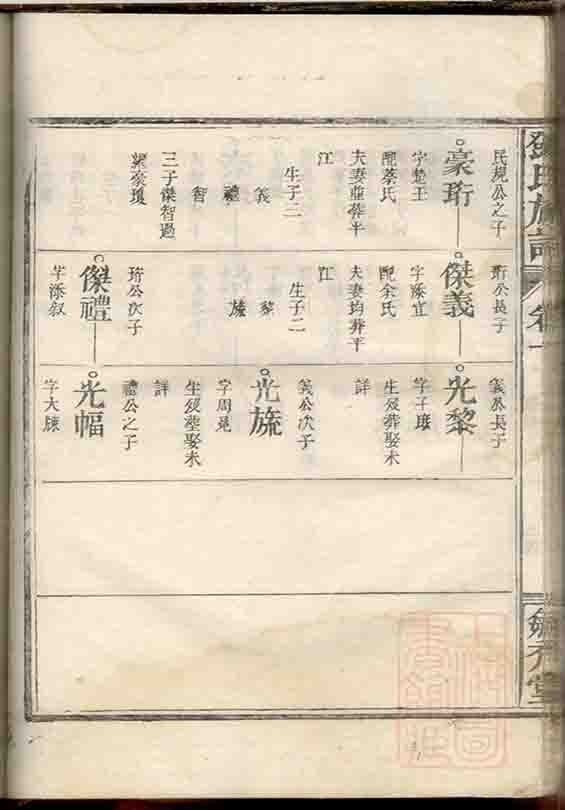 鄧氏族譜
民規公之子
豪珩
字楚王
配蔡氏
夫妻並葬半
江
生子
義
禮
智
三子傑智過
繼豪瓊
珩公長子
傑義
字添宜
配余氏
夫妻均葬平
江
生子二
黎
旒
珩公次子
傑禮
字添叙
義公長子
光黎
字子康
生歿葬娶未
詳
義公次子
光旒
字周冕
生歿塟娶未
詳
禮公之子
光幅
字大康